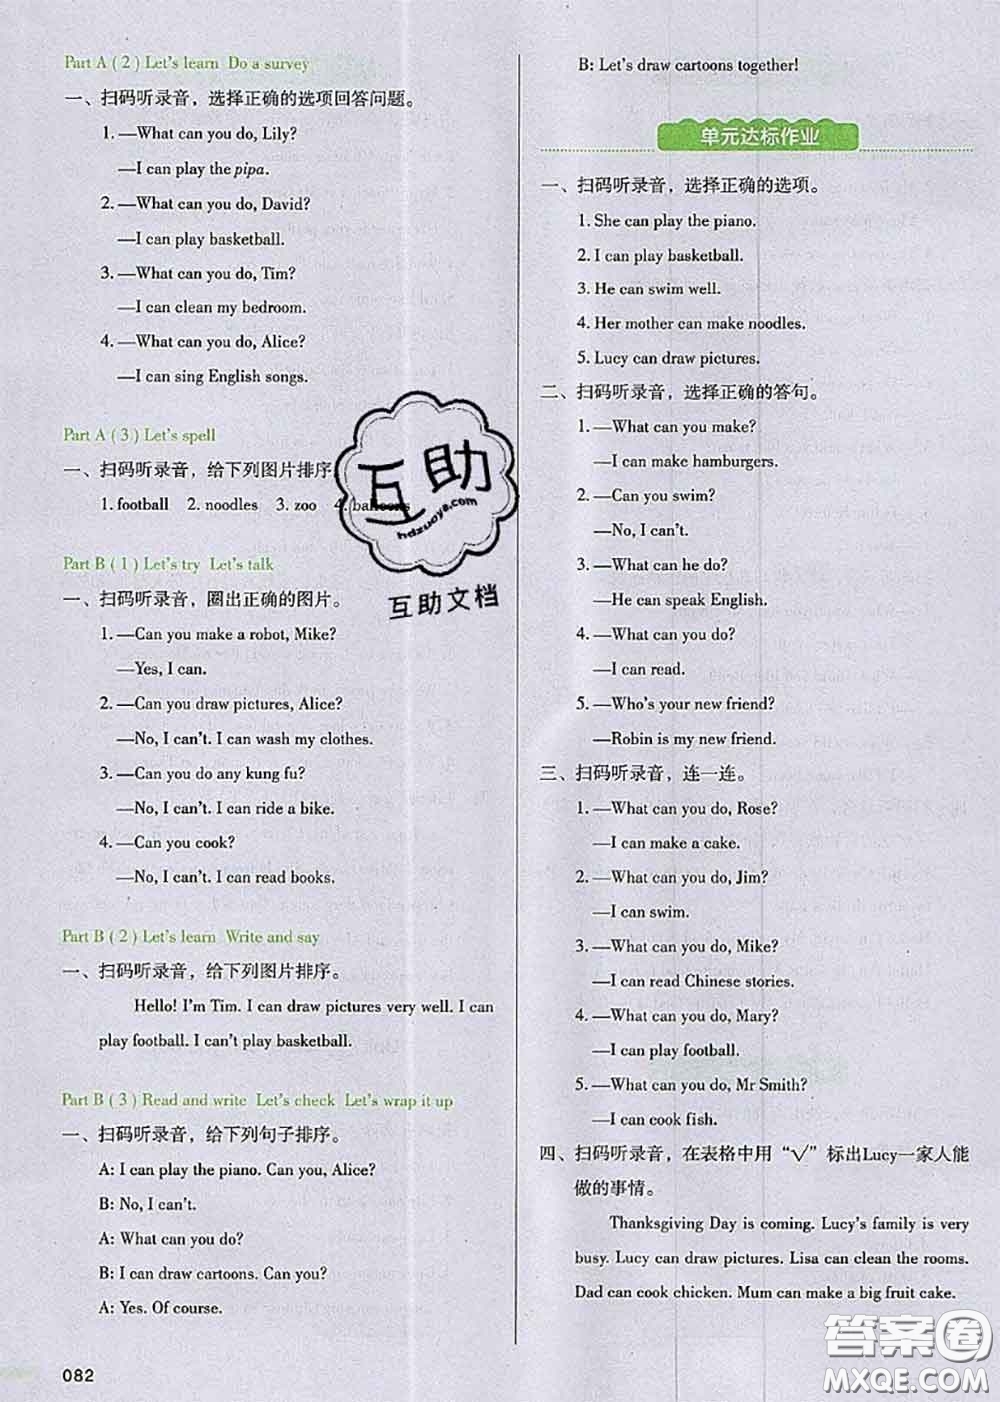 Part A ( 2 ) Let's learn Do a survey
一、扫码听录音，选择正确的选项回答问题。
1. —What can you do, Lily?
—I can play the pipa.
2. —What can you do, David?
—I can play basketball.
3. —What can you do, Tim?
—I can clean my bedroom.
4. —What can you do, Alice?
—I can sing English songs.
Part A ( 3 ) Let's spell
一、扫码听录音，给下列图片排序
1. football 2. noodles 3. zoo 4. balloons
Part B ( 1 ) Let's try Let's talk
一、扫码听录音，圈出正确的图片。
1. —Can you make a robot, Mike?
—Yes, I can.
2. —Can you draw pictures, Alice?
—No, I can't. I can wash my clothes.
3. —Can you do any kung fu?
—No, I can't. I can ride a bike.
4. —Can you cook?
—No, I can't. I can read books.
Part B ( 2 ) Let's learn Write and say
一、扫码听录音，给下列图片排序。
Hello! I'm Tim. I can draw pictures very well. I can
play football. I can't play basketball.
Part B ( 3 ) Read and write Let's check Let's wrap it up
一、扫码听录音，给下列句子排序。
A: I can play the piano. Can you, Alice?
B: No, I can't.
A: What can you do?
B: I can draw cartoons. Can you?
A: Yes. Of course.
082
B: Let's draw cartoons together!
单元达标作业
一、扫码听录音，选择正确的选项。
1. She can play the piano.
2. I can play basketball.
3. He can swim well.
4. Her mother can make noodles.
5. Lucy can draw pictures.
二、扫码听录音，选择正确的答句。
1. —What can you make?
—I can make hamburgers.
2. —Can you swim?
—No, I can't.
3. —What can he do?
—He can speak English.
4. —What can you do?
—I can read.
5. —Who's your new friend?
—Robin is my new friend.
三、扫码听录音，连一连。
1. —What can you do, Rose?
—I can make a cake.
2. —What can you do, Jim?
—I can swim.
3. —What can you do, Mike?
—I can read Chinese stories.
4. —What can you do, Mary?
—I can play football.
5. —What can you do, Mr Smith?
—I can cook fish.
四、扫码听录音，在表格中用“√”标出Lucy一家人能
做的事情。
Thanksgiving Day is coming. Lucy's family is very
busy. Lucy can draw pictures. Lisa can clean the rooms.
Dad can cook chicken. Mum can make a big fruit cake.
互助
hdzuoye.com
互助文档
答案圈
MXQE.COM